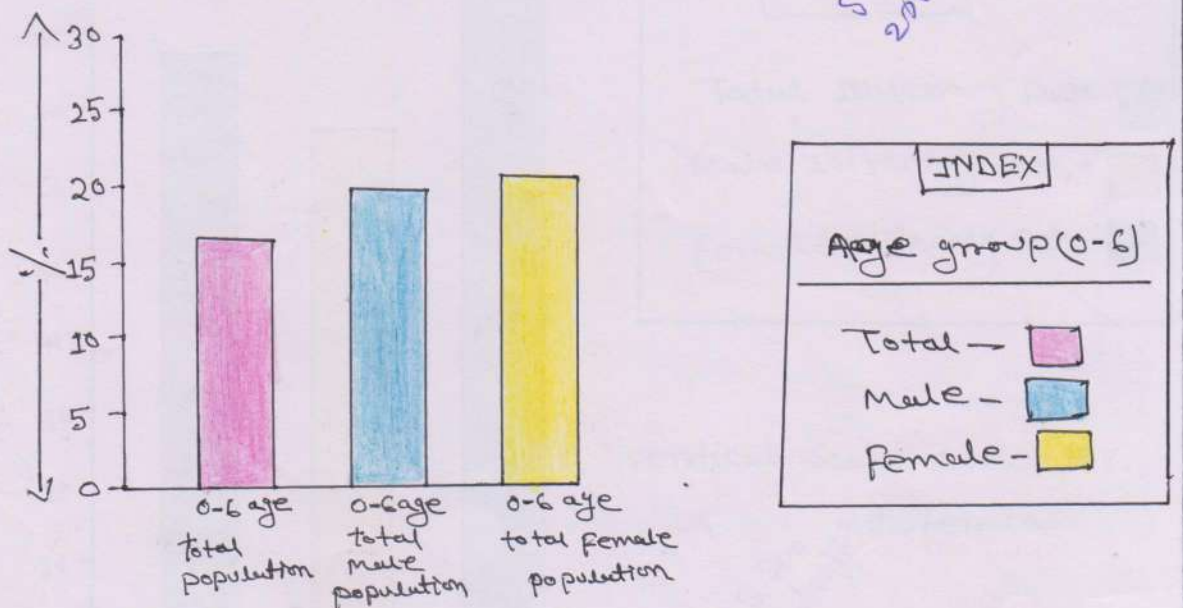 30
25
20
15
10
5
0
%
0-6 age
total
population
0-6 age
total
male
population
0-6 age
total female
population
INDEX
Age group (0-6)
Total —
Male -
female -